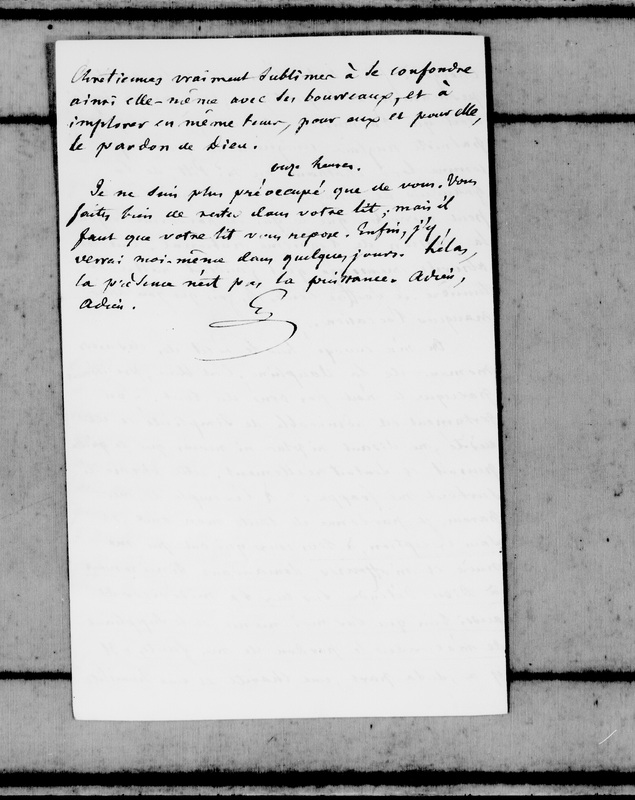 Chrétiennes vraiment sublimes à se confondre
ainsi elle-même avec ses bourreaux, et à
implorer en même tems, pour eux et pour elle,
le pardon de Dieu.
onze heures.
Je ne suis plus préoccupé que de vous. Vous
faites bien de rester dans votre lit ; mais il
faut que votre lit vous repose. Enfin, j'y
verrai moi-même dans quelques jours. hélas,
la présence n'est pas la puissance. Adieu,
Adieu.
G